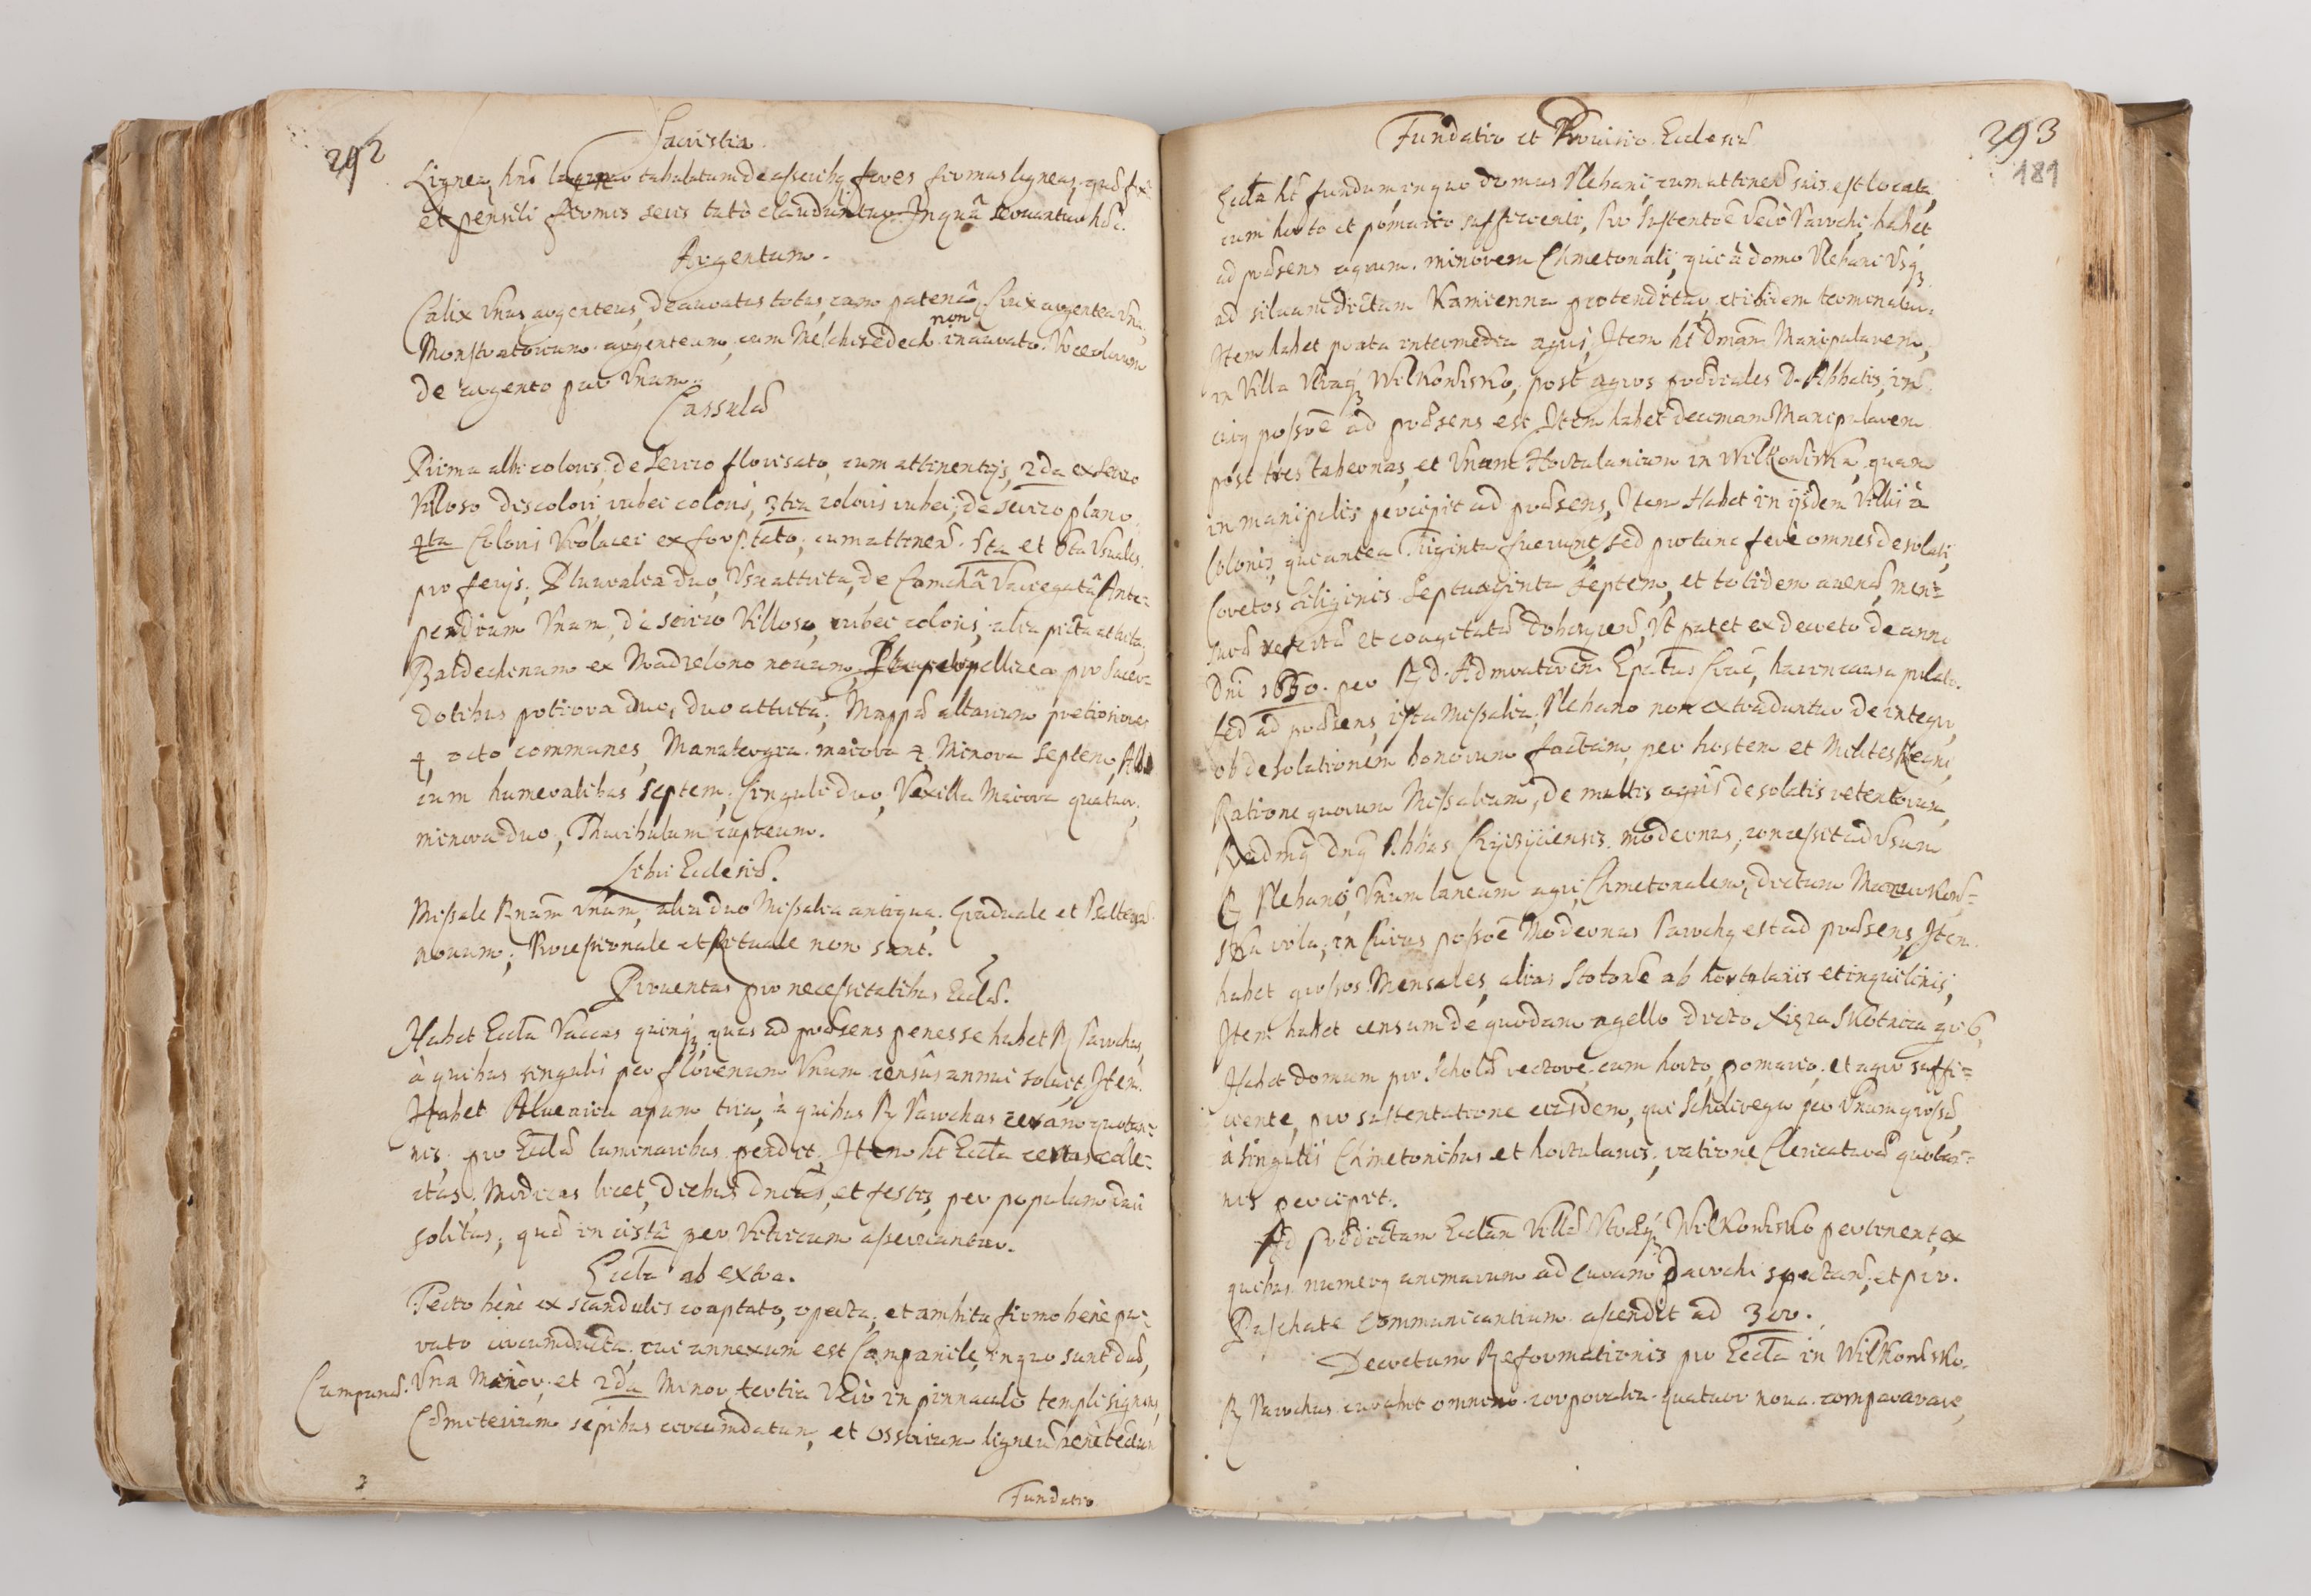 292
Sacristia.
Lignea, hñs tabulatum de asseribg fores firmas ligneas, quæ
et pensili firmis seris tutò clauduntur. In quâ servantur hæc.
Argentum.
Calix Vnus argenteus, deauratus totus, cum patenâ, Crux argentea Vna,
non
Monstratorium argenteum, cum Melchisedech inaurato. Vrceolorum
de argento par Vnum.
Cassulæ
Prima albi coloris, de Serico florisato, cum attinentijs, 2da ex Serico
Villoso discolori, rubei coloris, 3tia coloris rubei, de serico plano
4ta Coloris Violacei ex cum attinen. 5ta et 6ta Vsuales
pro ferijs; Pluvialia duo, Vsu attrita, de Variegatâ Ante-
pendium Vnum, de serico Villoso, rubei coloris, alia picta attrita,
Baldechinum ex nouum, pro Sacer-
dotibus potiora duo, duo attrita; Mappæ altarium pretiosiores
4, octo communes, Manutergia maiora 4. Minora Septem, Albæ
cum humeralibus Septem, Cinguli duo, Vexilla Maiora quatuor,
minora duo, Thuribulum cupreum.
Libri Ecclesiæ.
Missale Rnum Vnum, alia duo Missalia antiqua. Graduale et
nouum; Processionale et Rituale non sunt.
Prouentus pro necessitatibus Ecclæ.
Habet Eccla Vaccas quinq3 quas ad præsens penes se habet R Parochus,
à quibus singulis per florenum Vnum censûs annui soluit, Item
Habet Aluearia apum tria, à quibus R Parochus ceram quotan-
nis, pro Ecclæ luminaribus pendit. Item ht Eccla certas
Modicas licet, diebus Dnicis, et festis, per populum dari
solitas, quæ in cistâ per Vitricum asseruantur.
Eccla ab extra.
Tecto benè ex scandulis coaptato, operta, et ambitu firmo benè pa-
rato circumducta, cui annexum est Campanile, in quo sunt duæ,
Campanæ. Vna Maior, et 2da Minor, tertia Verò in pinnaculo templi
Cæmeterium sepibus circumdatum, et ossorium ligneum benè tectum
Fundatio
293
181
Fundatio et Prouisio Ecclesiæ
Eccla ht fundum, in quo domus Plebani, cum attinen suis est locata,
cum horto et pomario sufficienti, Pro Sustentoe Verò Parochi, habet
ad præsens agrum minorem Chmetonali, qui à domo Plebani Vsq3
ad siluam dictam Kamienna protenditur, et ibidem terminatur.
Item habet prata intermedia agri, Item ht Dmam Manipularem,
in Villa Vtraq3 Wilkonisko, post agros prædiales D. Abbatis, in
cuiq possoe ad præsens est Item habet decimam Manipularem
post tres tabernas, et Vnum Hortulanum in Wilkowiska, quam
in manipulis percipit ad præsens, Item Habet in ijsdem Villis à
Colonis, qui antea Triginta fuerunt, sed pro tunc ferè omnes desolati,
Coretos siliginis Septuaginta Septem, et totidem auenæ, men-
suræ refertæ et coagitatæ Vt patet ex decreto de anno
Dni 1650. per Rd. Administratorem Epatus Crac, hac in causa prolato.
Sed ad præsens, ista Missalia, Plebano non extraduntur de integro,
ob desolationem bonorum factam, per hostem et Milites Regni,
Ratione quorum Missalium, de multis agris desolatis retentorum,
Rndmg Dng Abbas modernus, concessit ad Vsum
R Plebano, Vnum laneum agri, Chmetonalem, dictum
ska rola, in cuius possoe Modernus Parochg est ad præsens, Item
habet grossos Mensales, alias Stolowe ab hortulanis et inquilinis,
Item habet censum de quodam agello dicto Xięza Skotnica gr 6,
Habet domum pro Scholæ rectore, cum horto, pomario, et agro suffi-
ciente, pro sustentatione eiusdem, qui Scholirega per Vnum grossum,
à singulis Chmetonibus et hortulanis, ratione Clericaturæ quotan-
nis percipit.
Ad prædictam Ecclam Villæ Vtræq3 Wilkonisko pertinent, ex
quibus numerg animarum ad curam Parochi spectan, et pro
Paschate communicantium ascendit ad 300.
Decretum Reformationis pro Eccla in Wilkonisko.
R Parochus curabit omnino corporalia quatuor noua comparare,